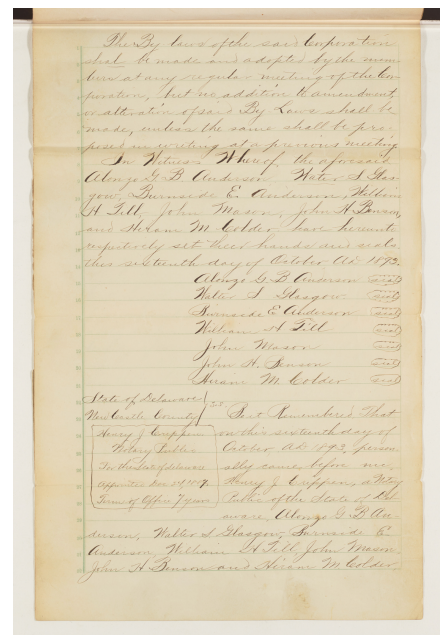 The By laws of the said Corporation
shal be made and adopted by the mem
bers at any regular meeting of the Cor-
poration, but no addition to amendment,
or altration of said By Laws shall be
made, unless the same shall be pro-
posed in writing at a previous meeting
In Witness Whereof the aforesaid
Alonzo G. B Anderson Walter S Glas-
gow, Burnside E. Anderson, William
H. Till, John Mason, John H. Benson,
and Hiram M. Colder have hereunto
respectively set their hands and seals
this sixteenth day of October A.D. 1893.
Alonzo G. B Anderson seal
Walter S Glasgow seal
Burnside E Anderson seal
William H Till seal
John Mason seal
John H. Benson seal
Hiram M. Colder seal
State of Delaware
New Castle County } S.S.
Henry J Crippen
Notary Public
For the State of Delaware
Appointed
Term of Office 7 years
Be it Remembered That
on this sixteenth day of
October A.D. 1893, person
ally came before me,
Henry J Crippen, a Notary
Public of the State of Del
aware, Alonzo G. B. An-
derson, Walter S Glasgow, Burnside E
Anderson, William H Till, John Mason
John H Benson and Hiram M. Colder,